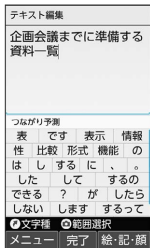 テキスト編集
企画会議までに準備する
資料一覧
つながり予測
表 です 表示 情報
性 比較 形式 機能 の
は し する に 、 。
した して するの
できる ? が したら
しない します するって
文字種 範囲選択
メニュー 完了 絵・記・顔